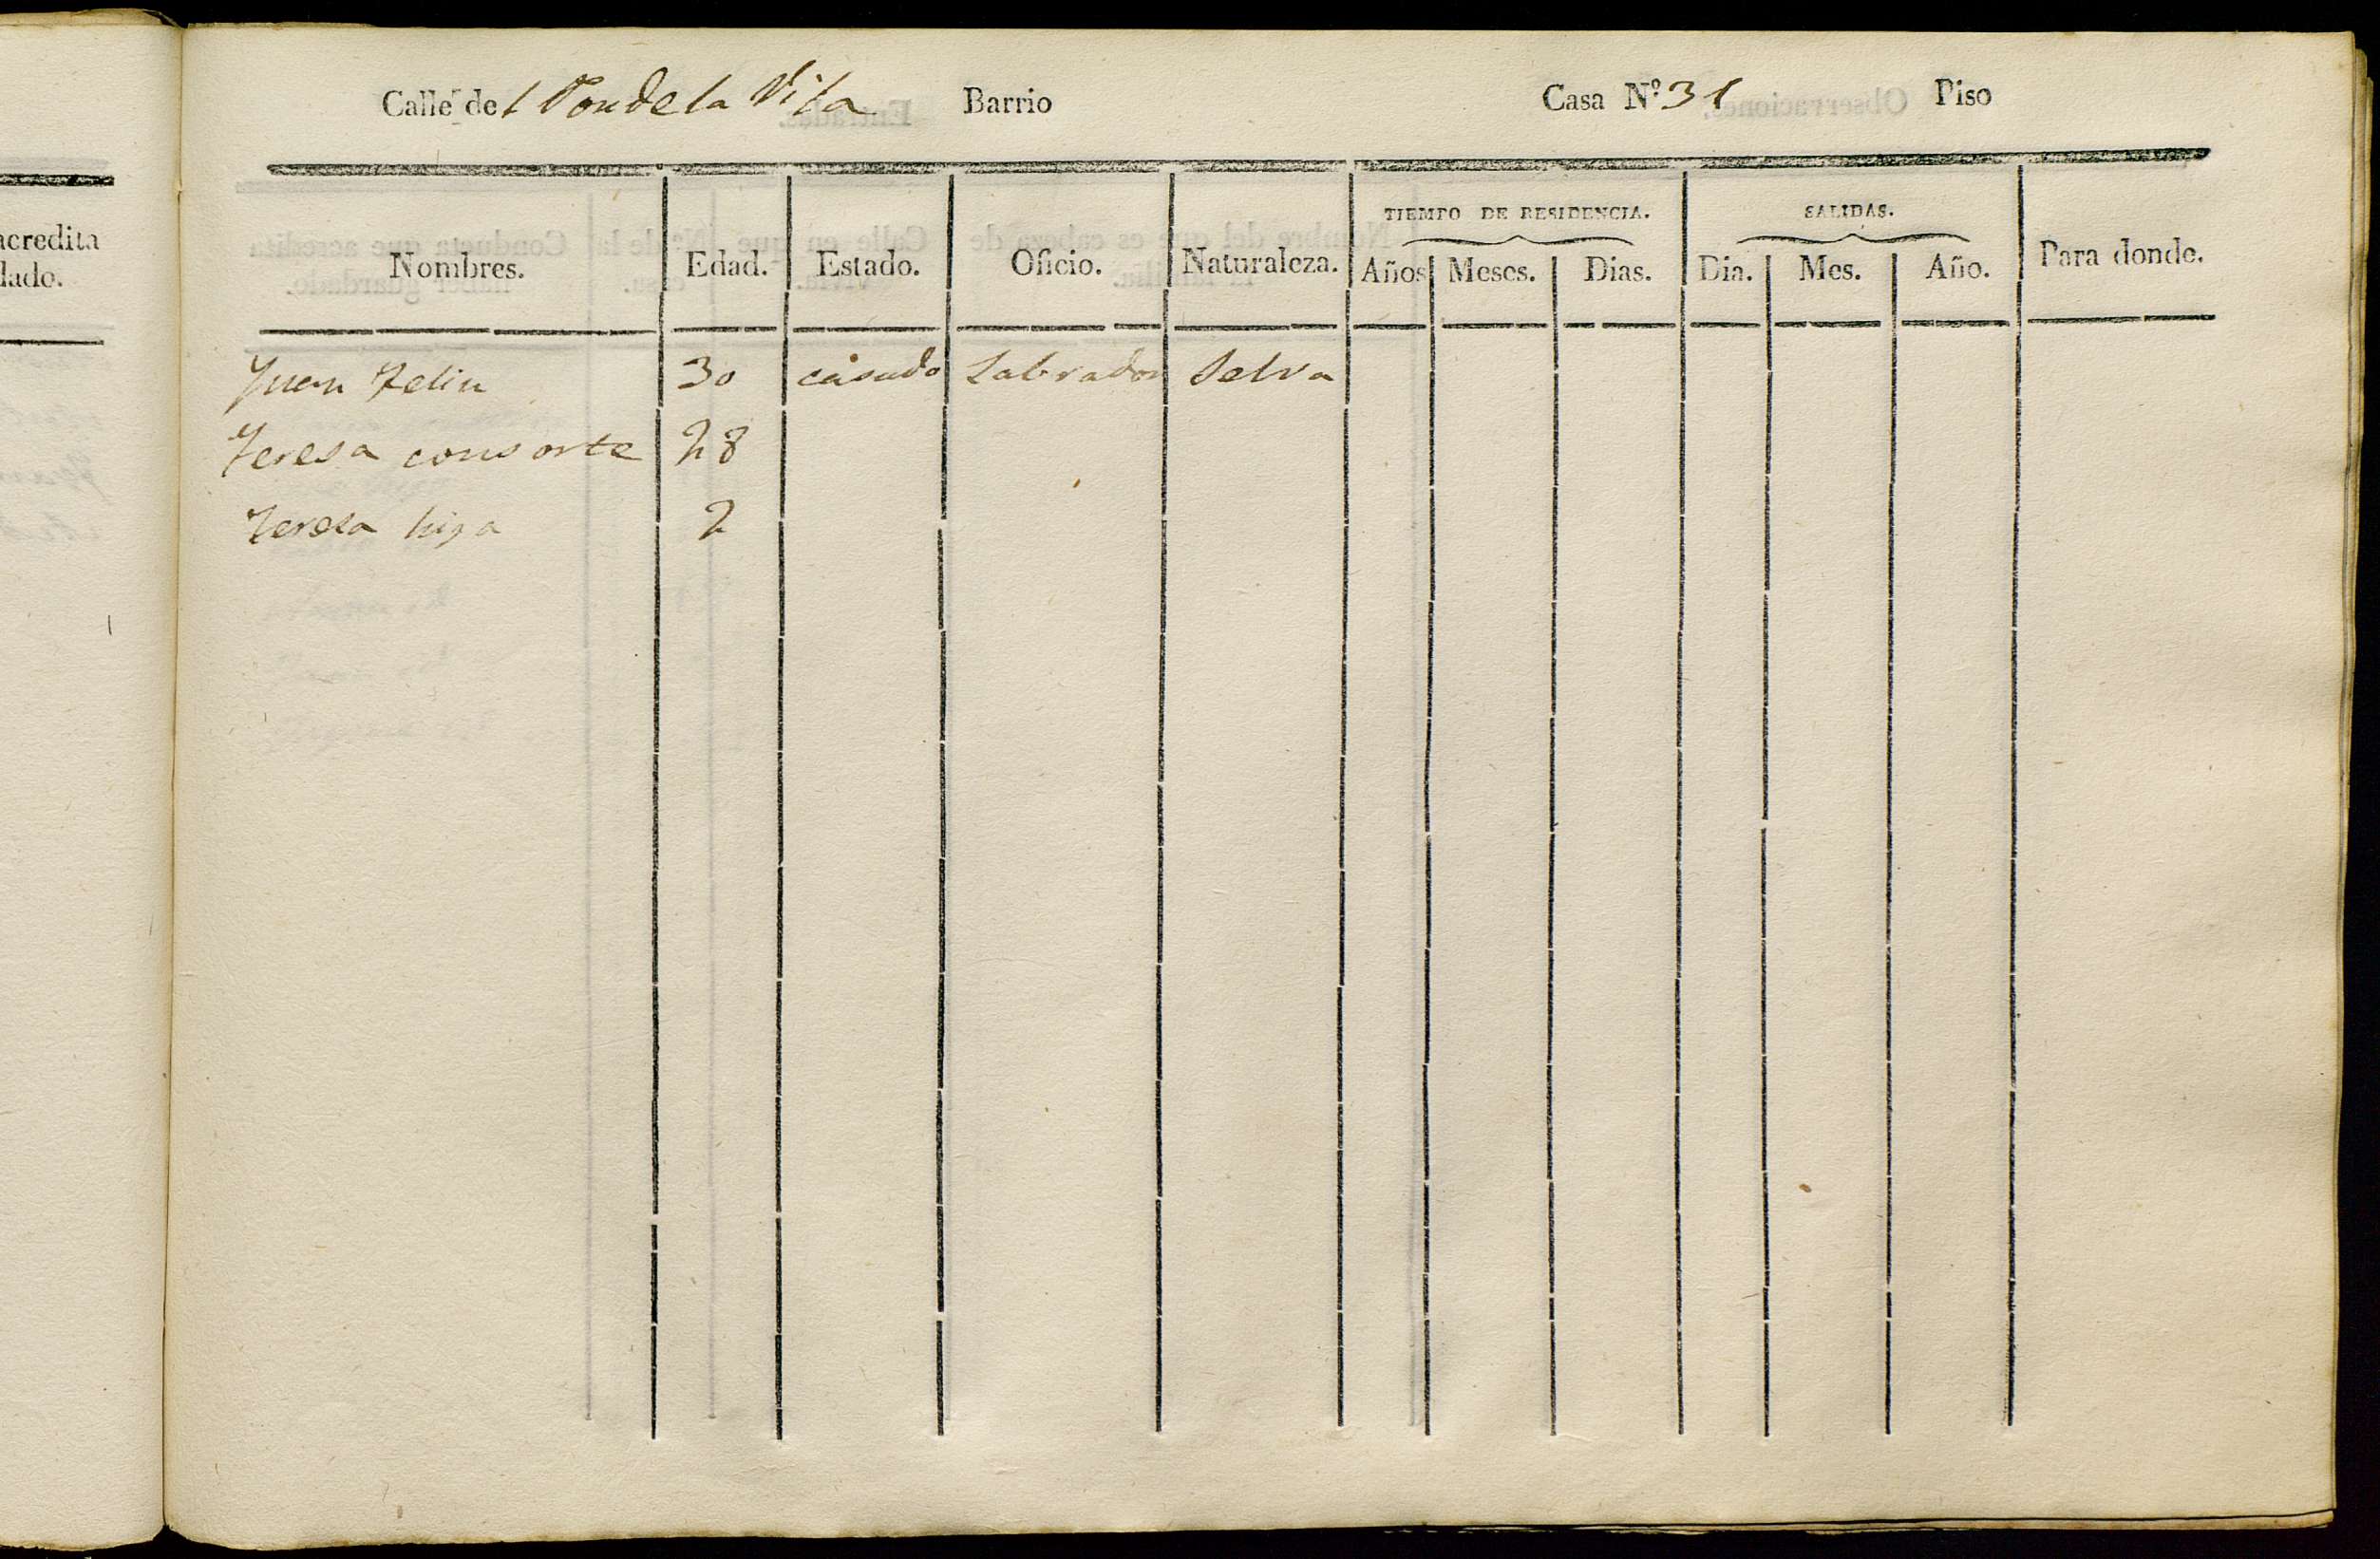 acredita
dado.
Calle de l Pou de la Vila Barrio Casa Nº 31 Piso
TIEMPO DE RESIDENCIA. SALIDAS.
Nombres. Edad. Estado. Oficio. Naturaleza. Años Meses. Dias. Dia. Mes. Año. Para donde.
Juan Feliu 30 casado Labrador Selva
Teresa consorte 28
Teresa hija 2